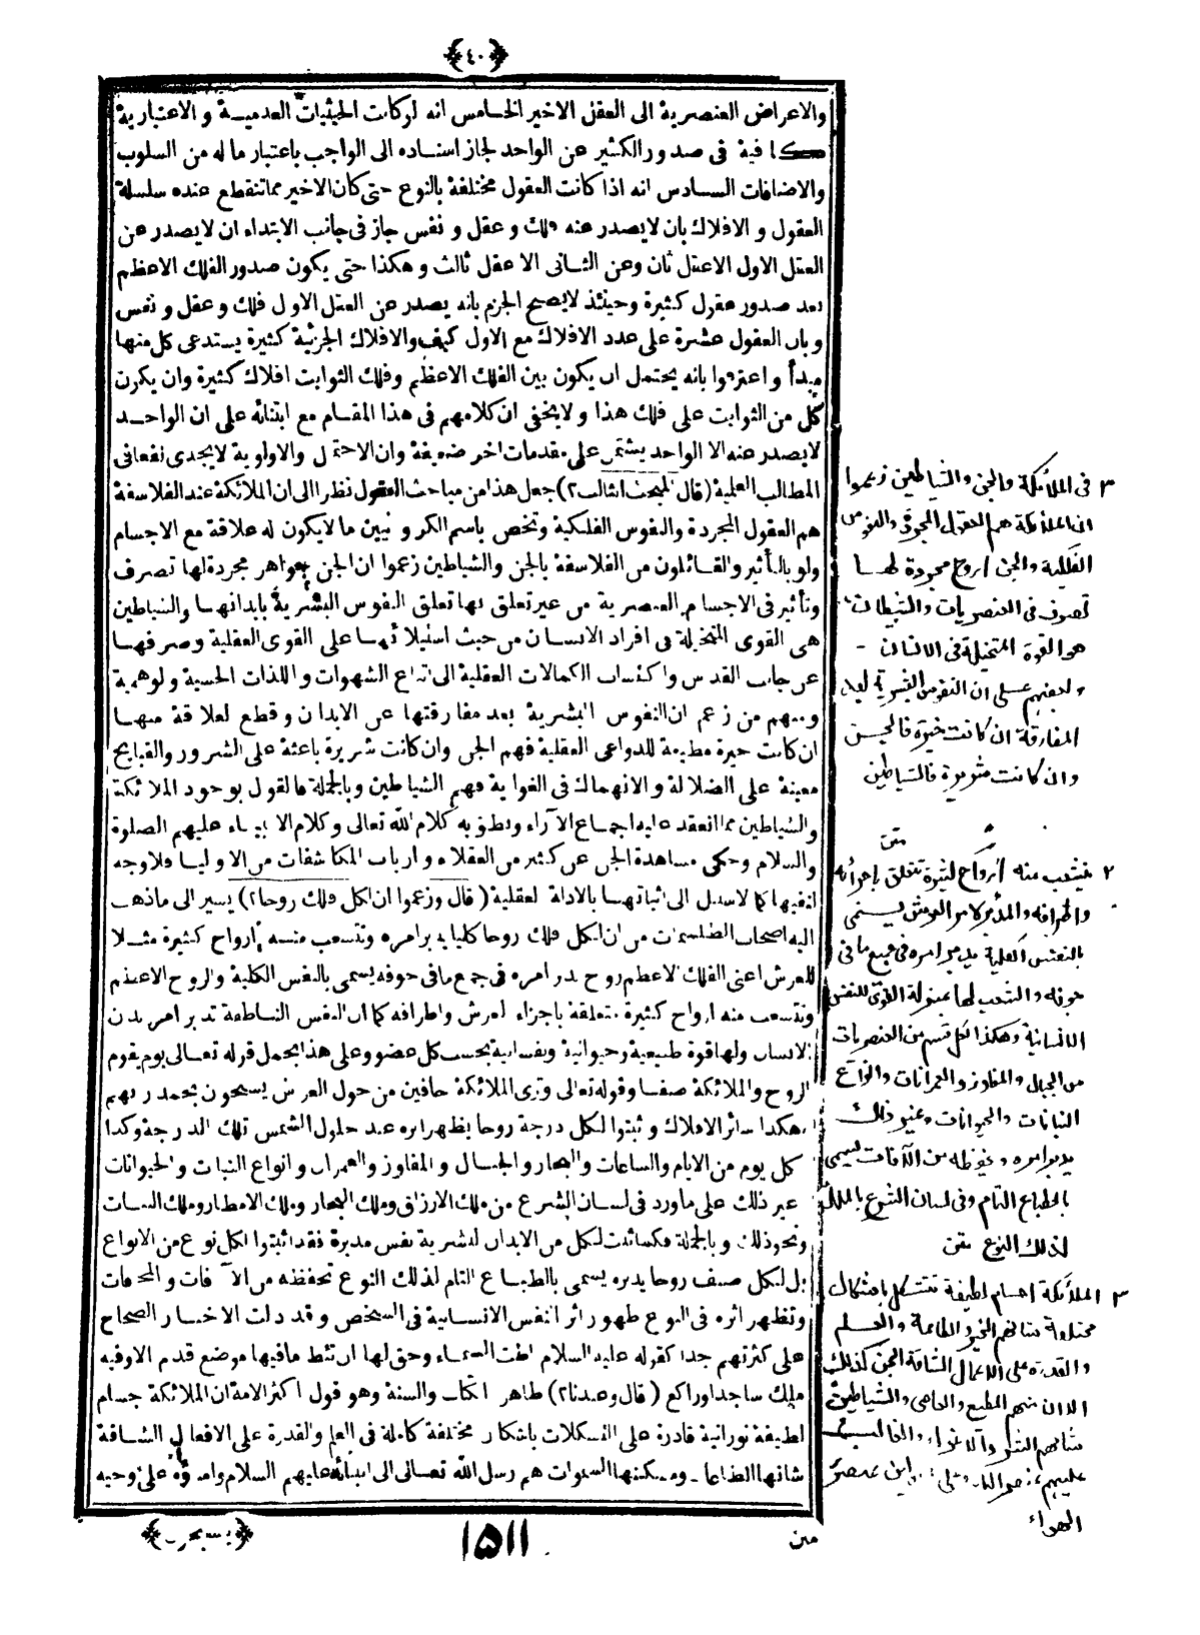 ﴿٤٠﴾
والاعراض العنصرية الى العقل الاخير الخامس انه لوكانت الحيثيات العدميــة و الاعتبارية
كافية فى صدورالكثير عن الواحد لجاز اسناده الى الواجب باعتبار ما له من السلوب
والاضافات السادس انه اذا كانت العقول مختلفة بالنوع حتى كان الاخير مما تنقطع عنده سلسلة
العقول و الافلاك بان لا يصدر عنه فلك و عقل و نفس جاز فى جانب الابتداء ان لا يصدر عن
العقل الاول الاعقل ثان وعن الثانى الا عقل ثالث و هكذا حتى يكون صدور الفلك الاعظم
بعد صدور عقول كثيرة وحينئذ لايصح الجزم بانه يصدر عن العقل الاول فلك و عقل و نفس
وبان العقول عشرة على عدد الافلاك مع الاول كيف والافلاك الجزئية كثيرة يستدعى كل منها
مبدأ و اعترفوا بانه يحتمل ان يكون بين الفلك الاعظم وفلك الثوابت افلاك كثيرة وان يكون
كل من الثوابت على فلك هذا و لا يخفى ان كلامهم فى هذا المقام مع ابتنائه على ان الواحد
لا يصدر عنه الا الواحد يشتمل على مقدمات اخر ضعيفة وان الاحتمال والاولوية لايجدى نفعا فى
المطالب العلمية (قال المبحث الثالث ٢) جعل هذا من مباحث العقول نظرا الى ان الملائكة عند الفلاسفة
هم العقول المجردة والنفوس الفلكية وتخص باسم الكروبيين ما لا يكون له علاقة مع الاجسام
ولو بالتأثير والقائلون من الفلاسفة بالجن والشياطين زعموا ان الجن جواهر مجردة لها تصرف
وتأثير فى الاجسام العنصرية من غير تعلق بها تعلق النفوس البشرية بابدانها والشياطين
هى القوى المتخيلة فى افراد الانسان من حيث استيلائها على القوى العقلية وصرفها
عن جانب القدس واكتساب الكمالات العقلية الى اتباع الشهوات و اللذات الحسية والوهمية
ومنهم من زعم ان النفوس البشرية بعد مفارقتها عن الابدان و قطع العلاقة منها
ان كانت خيرة مطيعة للدواعى العقلية فهم الجن وان كانت شريرة باعثة على الشرور والقبايح
معينة على الضلالة والانهماك فى الغواية فهم الشياطين وبالجملة فالقول بوجود الملائكة
والشياطين مما انعقد عليه اجماع الآراء ونطق به كلام الله تعالى وكلام الانبياء عليهم الصلوة
والسلام وحكى مشاهدة الجن عن كثير من العقلاء و ارباب المكاشفات من الاوليا فلاوجه
لنفيها كما لا سبيل الى اثباتها بالادلة العقلية (قال وزعموا ان لكل فلك روحا ٢) يشير الى ما ذهب
اليه اصحاب الطلسمات من ان لكل فلك روحا كليا يدبر امره وتتشعب منه ارواح كثيرة مثلا
للعرش اعنى الفلك الاعظم روح يدبر امره فى جميع مافى جوفه يسمى بالنفس الكلية والروح الاعظم
وتتشعب منه ارواح كثيرة متعلقة باجزاء العرش واطرافه كما ان النفس الناطقة تدبر امر بدن
الانسان ولها قوة طبيعية وحيوانية ونفسانية بحسب كل عضو وعلى هذا يحمل قوله تعالى يوم يقوم
الروح والملائكة صفا وقوله تعالى وترى الملائكة حافين من حول العرش يسبحون بحمد ربهم
وهكذا سائر الافلاك و ثبتوا لكل درجة روحا يظهر اثره عند حلول الشمس تلك الدرجة وكذا
كل يوم من الايام والساعات والبحار والجبال و المفاوز والعمران وانواع النبات و الحيوانات
غير ذلك على ماورد فى لسان الشرع من ملك الارزاق وملك البحار وملك الامطار وملك
ونحو ذلك وبالجملة فكما ثبت لكل من الابدان البشرية نفس مدبرة فقد اثبتوا لكل نوع من الانواع
بل لكل صنف روحا يدبره يسمى بالطباع التام لذلك النوع تحفظه من الآفات و المخافات
وتظهر اثره فى النوع ظهور اثر النفس الانسانية فى الشخص وقد دلت الاخبار الصحاح
على كثرتهم جدا كقوله عليه السلام اطت السماء وحق لها ان تئط مافيها موضع قدم الاوفيه
ملك ساجد او راكع (قال وعندنا ٢) ظاهر الكتاب والسنة وهو قول اكثر الامة ان الملائكة اجسام
لطيفة نورانية قادرة على التشكلات باشكال مختلفة كاملة فى العلم والقدرة على الافعال الشاقة
شانها الطاعات ومسكنها السموات هم رسل الله تعالى الى انبيائه عليهم السلام وامناؤه على وحيه
﴿يسبحون﴾
١٥١١
متن
٣ فى الملائكة والجن والشياطين زعموا
ان الملائكة هم العقول المجردة والنفوس
الفلكية والجن ارواح مجردة لها
تصرف فى العنصريات والشيطان
هو القوة المتخيلة فى الانسان
وبعضهم على ان النفوس البشرية بعد
المفارقة ان كانت خيرة فالجن
وان كانت شريرة فالشياطين
متن
٢ يتشعب منه ارواح كثيرة تتعلق باجزائه
واطرافه والمدبر لامر العرش يسمى
بالنفس الكلية يدبر امره فى جميع ما فى
جوفه والشعب لها بمنزلة القوى للنفس
الانسانية وهكذا لكل قسم من العنصريات
من الجبال والمفاوز والعمرانات وانواع
النباتات والحيوانات وغير ذلك
يدبر امره ويحفظه من الآفات يسمى
بالطباع التام وفى لسان الشرع بالملك
لذلك النوع متن
٣ الملائكة اجسام لطيفة تتشكل باشكال
مختلفة شانهم الخير والطاعة والعلم
والقدرة على الاعمال الشاقة الجن كذلك
الا ان منهم المطيع والعاصى والشياطين
شانهم الشر والاغواء والغالب
عليهم عنصر النار وعلى الجن عنصر
الهواء